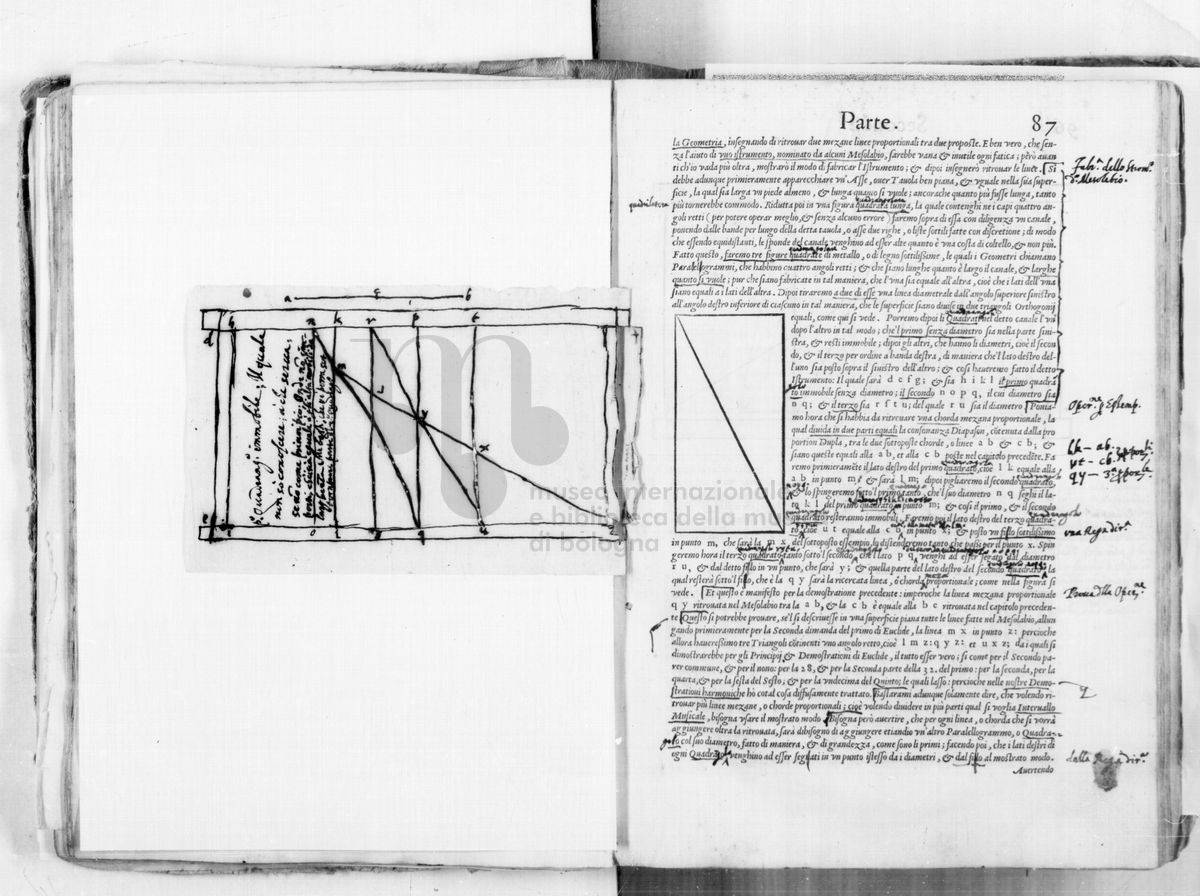 a c b
h k r p t
d
museo internazionale
e biblioteca della mu
di bologna
Parte. 87
la Geometria, insegnando di ritrouar due mezane linee proportionali tra due proposte. E ben vero, che sen-
za l'aiuto di vno istrumento, nominato da alcuni Mesolabio, sarebbe vana & inutile ogni fatica; però auan
ti ch'io vada più oltra, mostrarò il modo di fabricar l'Istrumento; & dipoi insegnerò ritrouar le linee. Si
debbe adunque primieramente apparecchiare vn' Asse, ouer Tauola ben piana, & vguale nella sua super-
ficie, la qual sia larga vn piede almeno, & lunga quanto si vuole; ancorache quanto più fusse lunga, tanto
più tornerebbe commodo. Ridutta poi in vna figura quadrata lunga, la quale contenghi ne i capi quattro an-
goli retti (per potere operar meglio, & senza alcuno errore) faremo sopra di essa con diligenza vn canale,
ponendo dalle bande per lungo della detta tauola, o asse due righe, o liste sottili fatte con discretione; di modo
che essendo equidistanti, le sponde del canale venghino ad esser alte quanto è vna costa di coltello, & non più.
Fatto questo, faremo tre figure quadrate di metallo, o di legno sottilissime, le quali i Geometri chiamano
Paralellogrammi, che habbino cuattro angoli retti; & che siano lunghe quanto è largo il canale, & larghe
quanto si vuole; pur che siano fabricate in tal maniera, che l'vna sia equale all'altra, cioè che i lati dell'vna
siano equali a i lati dell'altra. Dipoi tiraremo a due di esse vna linea diametrale dall'angolo superiore sinistro
all'angolo destro inferiore di ciascuno in tal maniera, che le superficie siano diuise in due triangoli Orthogonij
equali, come qui si vede. Porremo dipoi li Quadrati nel detto canale l'vn
dopo l'altro in tal modo; che'l primo senza diametro sia nella parte sini-
stra, & resti immobile; dipoi gli altri, che hanno li diametri, cioè il secon
do, & il terzo per ordine a banda destra, di maniera che'l lato destro del-
l'uno sia posto sopra il siuistro dell'altro; & cosi haueremo fatto il detto
Istrumento: Il quale sarà d e f g; & sia h i k l il primo quadra
to immobile senza diametro; il secondo n o p q, il cui diametro sia
n q; & il terzo sia r s t u; del quale r u sia il diametro. Ponia-
mo hora che si habbia da ritrouare vna chorda mezana proportionale, la
qual diuida in due parti equali la consonanza Diapason, cōtenuta dalla pro
portion Dupla, tra le due sottoposte chorde, o linee a b & c b; &
siano queste equali alla a b, et alla c b poste nel capitolo precedēte. Fa
remo primieramēte il lato destro del primo quadrato, cioè l k equale alla
a b in punto m; & sarà l m; dipoi pigliaremo il secondo quadrato,
& lo spingeremo sotto'l primo tanto, che'l suo diametro n q seghi il la-
to k l del primo quadrato in punto m; & cosi il primo, & il secondo
quadrato resteranno immobili. Faremo poi il lato destro del terzo quadra-
to, cioè u t equale alla c b in punto x; & posto vn filo sottilissimo
in punto m, che sarà la m x del sottoposto essempio, lo distenderemo tanto che passi per il punto x. Spin
geremo hora il terzo quadrato tanto sotto'l secondo, che'l lato p q venghi ad esser segato dal diametro
r u, & dal detto filo in vn punto, che sarà y; & quella parte del lato destro del secondo quadrato, la
qual resterà sotto'l filo, che è la q y sarà la ricercata linea, ò chorda proportionale; come nella figura si
vede. Et questo è manifesto per la demostratione precedente: imperoche la linea mezana proportionale
q y ritrouata nel Mesolabio tra la a b, & la c b è equale alla b c ritrouata nel capitolo preceden-
te. Questo si potrebbe prouare, se'l si descriuesse in vna superficie piana tutte le linee fatte nel Mesolabio, allun
gando primieramente per la Seconda dimanda del primo di Euclide, la linea m x in punto z: percioche
allora haueressimo tre Triangoli cōtinenti vno angolo retto, cioè l m z: q y z: et u x z; da i quali si
dimostrarebbe per gli Principij & Demostrationi di Euclide, il tutto esser vero; si come per il Secondo pa-
rer commune, & per il nono: per la 28, & per la Seconda parte della 32. del primo: per la seconda, per la
quarta, & per la sesta del Sesto; & per la vndecima del Quinto; le quali lasso: percioche nelle nostre Demo-
strationi harmoniche hò cotal cosa diffusamente trattato. Bastarami adunque solamente dire, che volendo ri-
trouar più linee mezane, o chorde proportionali; cioè volendo diuidere in più parti qual si voglia Interuallo
Musicale, bisogna vsare il mostrato modo. Bisogna però auertire, che per ogni linea, o chorda che si vorrà
aggiungere oltra la ritrouata, sarà dibisogno di aggiungere etiandio vn'altro Paralellogrammo, o Quadra-
to col suo diametro, fatto di maniera, & di grandezza, come sono li primi; facendo poi, che i lati destri di
ogni Quadrato venghino ad esser segati in vn punto istesso da i diametri, & dal filo al mostrato modo.
Auertendo